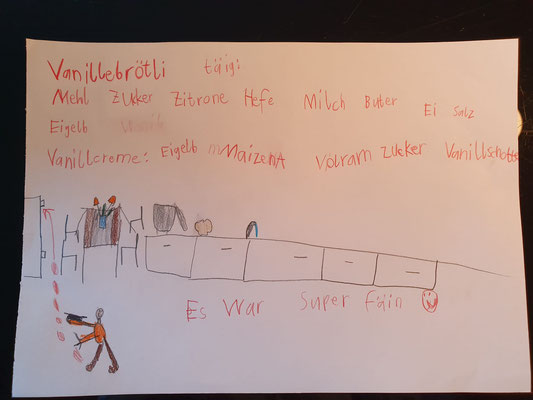 Vanillebrötli täig:
Mehl Zukker Zitrone Hefe Milch Buter Ei Salz
Eigelb
Vanillcreme: Eigelb mMaizenA Volram zucker Vanillschotte
Es War Super Fäin